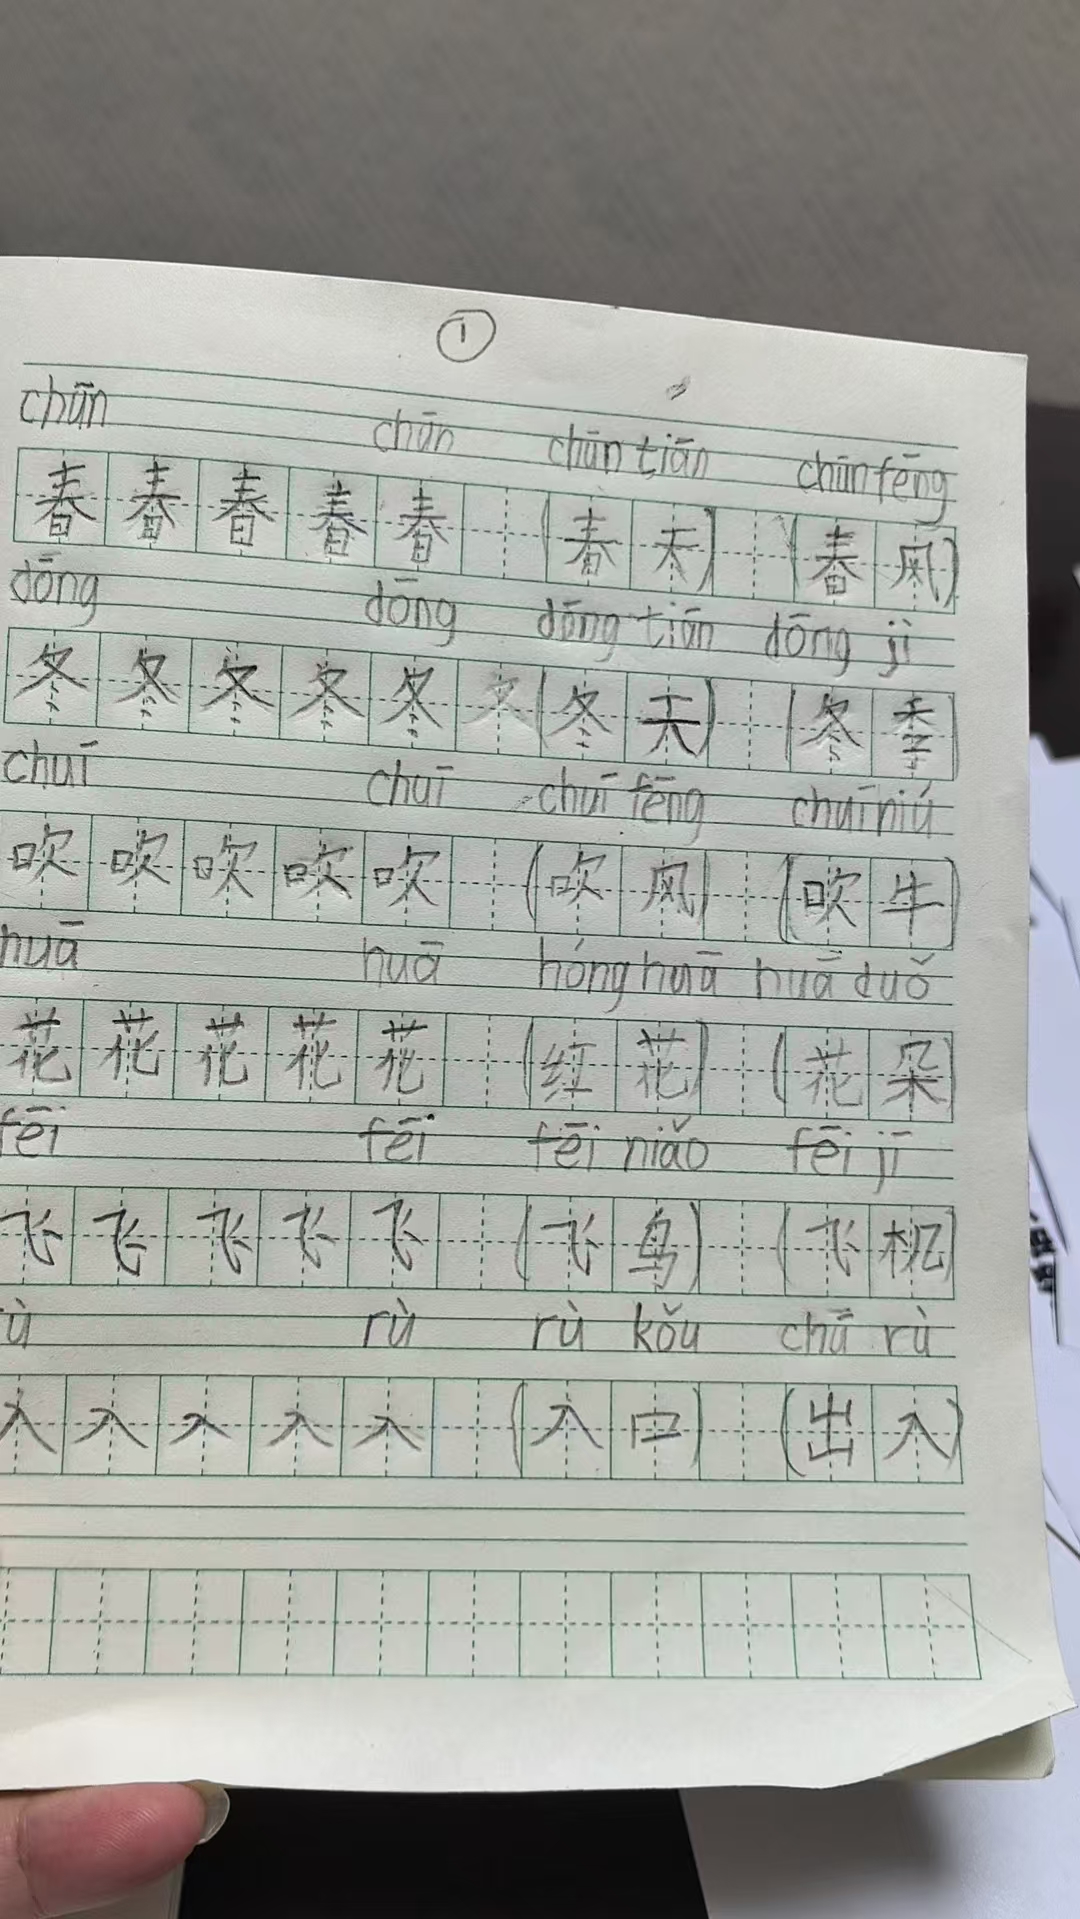 ①
chūn chūn chūn tiān chūn fēng
春 春 春 春 春 (春 天) (春 风)
dōng dōng dōng tiān dōng jì
冬 冬 冬 冬 冬 (冬 天) (冬 季)
chuī chuī chuī fēng chuī niú
吹 吹 吹 吹 吹 (吹 风) (吹 牛)
huā huā hóng huā huā duǒ
花 花 花 花 花 (红 花) (花 朵)
fēi fēi fēi niǎo fēi jī
飞 飞 飞 飞 飞 (飞 鸟) (飞 机)
rù rù rù kǒu chū rù
入 入 入 入 入 (入 口) (出 入)